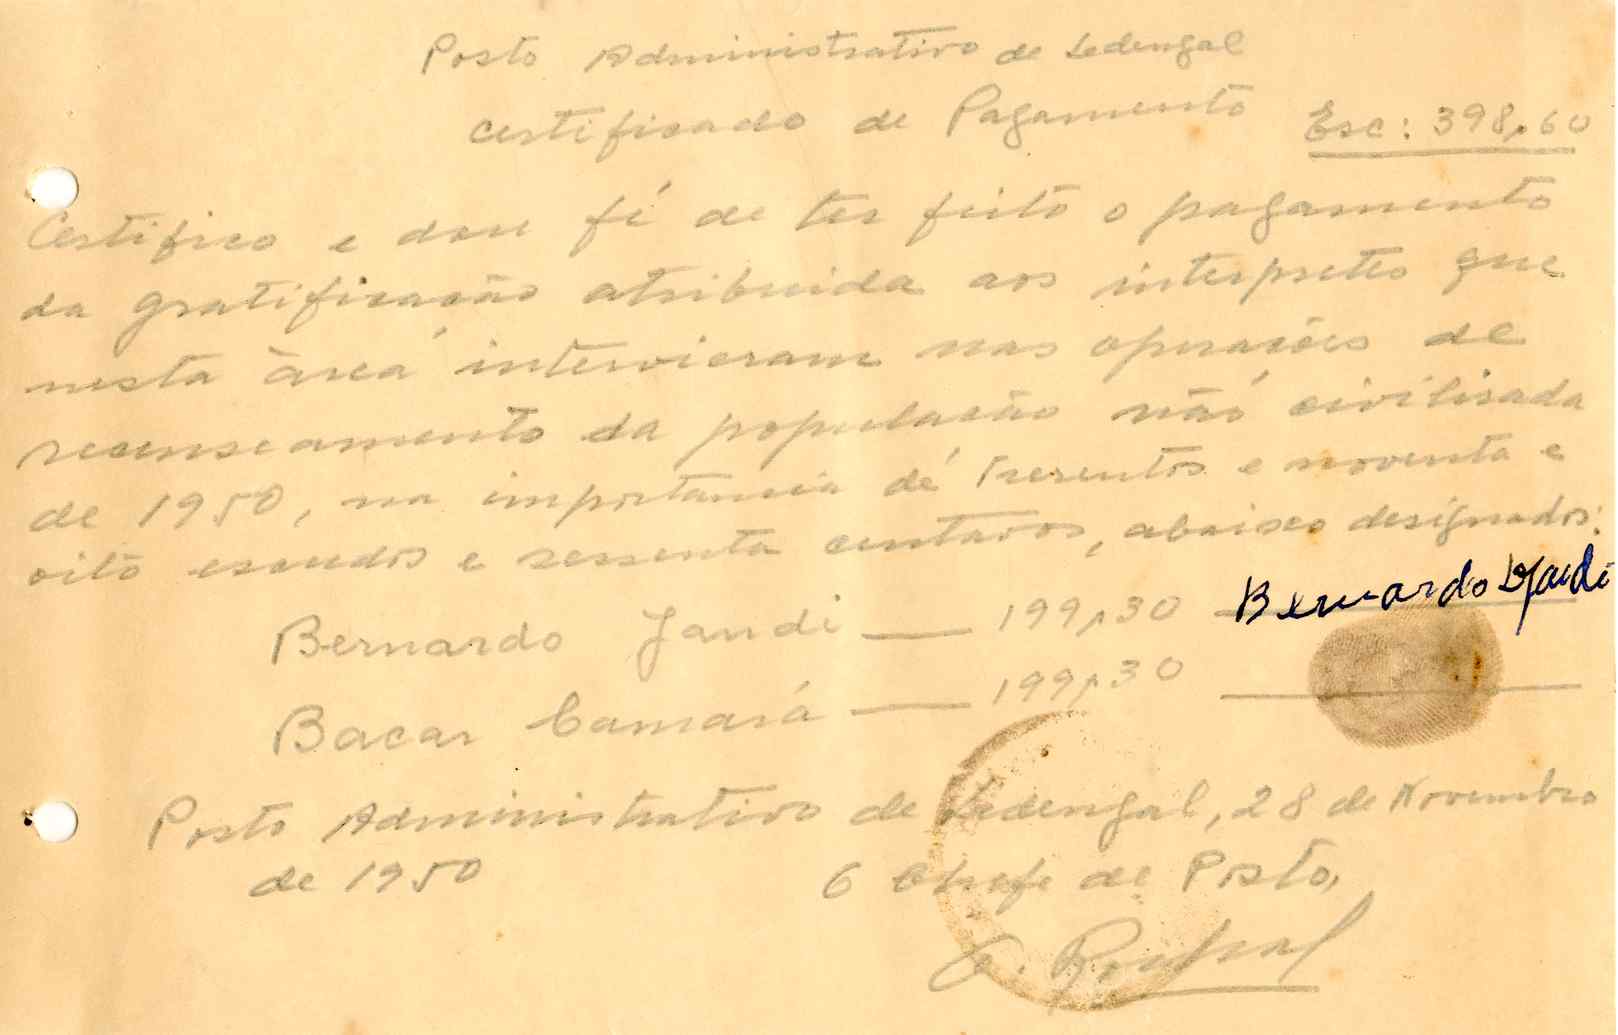 Posto Administrativo de Sedengal
Certificado de Pagamento Esc: 398$60
Certifico e dou fé de ter feito o pagamento
da gratificação atribuida aos interpretes que
nesta àrea intervieram nas operações de
recenseamento da população não civilisada
de 1950, na importancia de trezentos e noventa e
oito escudos e sessenta centavos, abaixo designados:
Bernardo Jandi — 199$30 Bernardo Djandi
Bacar Camará — 199$30
Posto Administrativo de Sedengal, 28 de Novembro
de 1950 O Chefe de Posto,